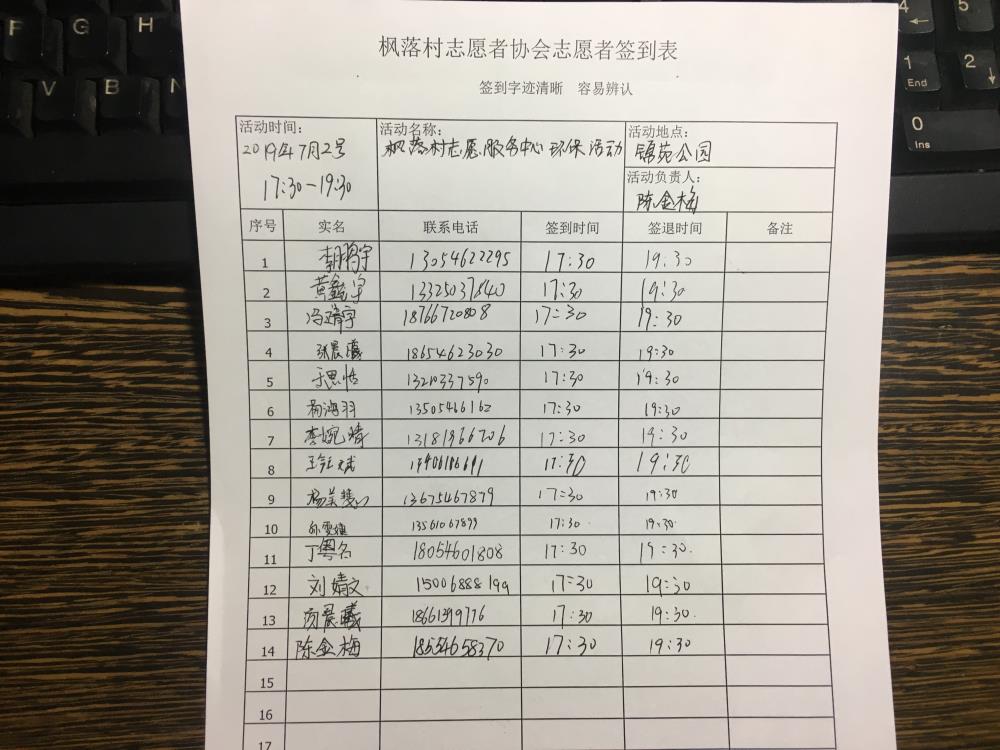 枫落村志愿者协会志愿者签到表
签到字迹清晰 容易辨认
活动时间：
2019年7月2号
17:30-19:30
活动名称：
枫落村志愿服务中心环保活动
活动地点：
锦苑公园
活动负责人：
陈金梅
序号 实名 联系电话 签到时间 签退时间 备注
1 13054622295 17:30 19:30
2 黄鑫宇 13325037840 17:30 19:30
3 冯靖宇 18766720808 17:30 19:30
4 张晨曦 18654623030 17:30 19:30
5 于思恬 13210337590 17:30 19:30
6 杨鸿羽 13505466162 17:30 19:30
7 李婉晴 13181966706 17:30 19:30
8 17:30 19:30
9 杨美慧 13675467879 17:30 19:30
10 13561067899 17:30 19:30
11 丁粤名 18054601808 17:30 19:30
12 刘婧文 15006888199 17:30 19:30
13 晨曦 18661399776 17:30 19:30
14 陈金梅 18554658370 17:30 19:30
15
16
17
F G H
V B N
4
1 End
2
0 Ins